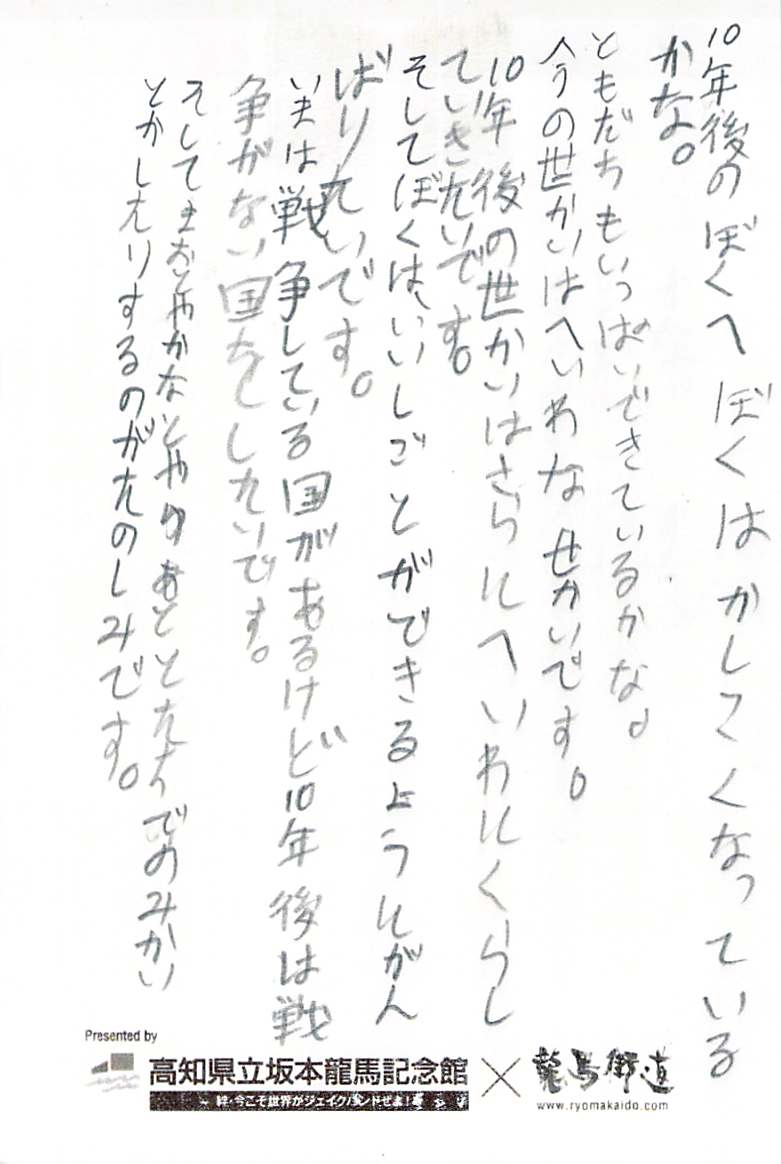 10年後のぼくへ ぼくはかしこくなっている
かな。
ともだちもいっぱいできているかな。
今の世かいはへいわなせかいです。
10年後の世かいはさらにへいわにくらし
ていきたいです。
そしてぼくは、いいしごとができるようにがん
ばりたいです。
いまは戦争している国があるけど10年後は戦
争がない国なくしたいです。
そして
とかしたりするのがたのしみです。
Presented by
高知県立坂本龍馬記念館 × 龍馬街道
~絆・今こそ世界がジェイクハンドぜよ!~
www.ryomakaido.com